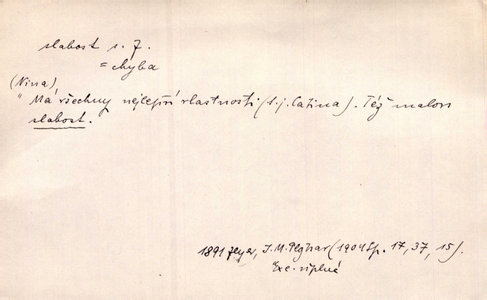 slabost s. f.
= chyba
(Nina)
"Má všechny nejlepší vlastnosti (t.j. Catina). Též malou
slabost.
1891 Zeyer, J.M.Plojhar (1904 Sp. 17, 37, 15).
Exc. úplná